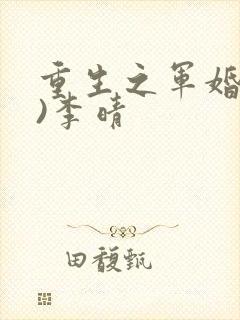 重生之军婚
)李晴
田馥甄